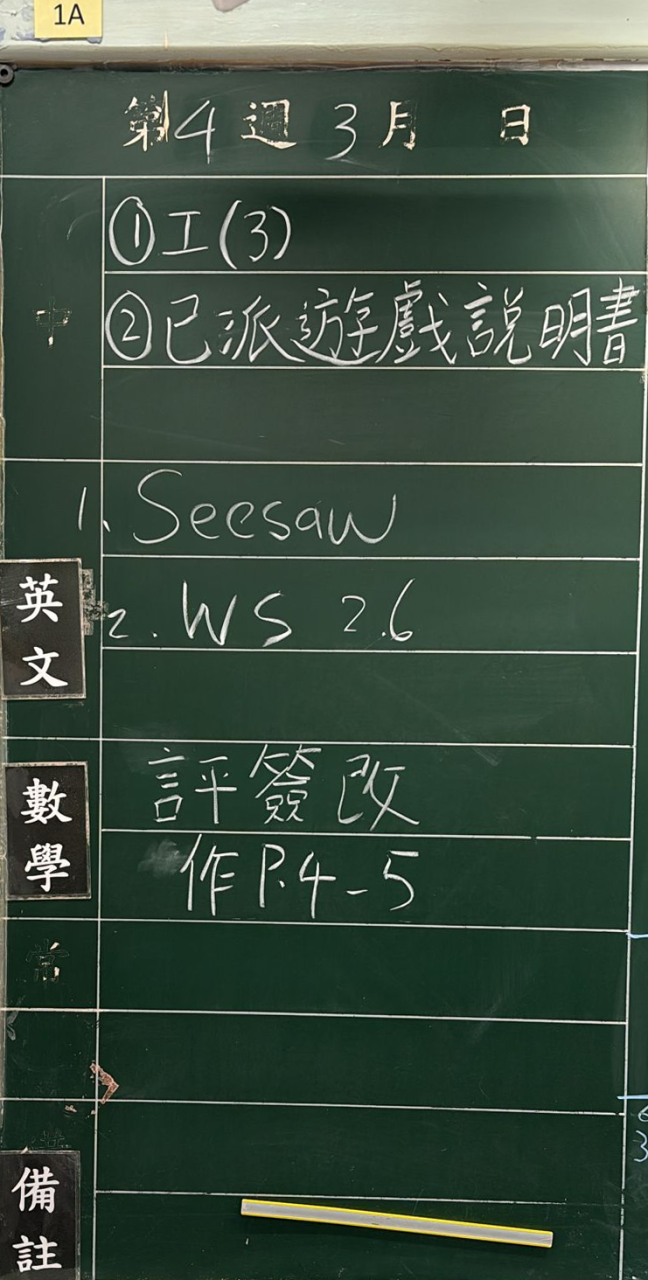 1A
第4週3月 日
中
①工(3)
②已派遊戲說明書
英文
1. Seesaw
2. WS 2.6
數學
評簽改
作P.4-5
常
備註
3